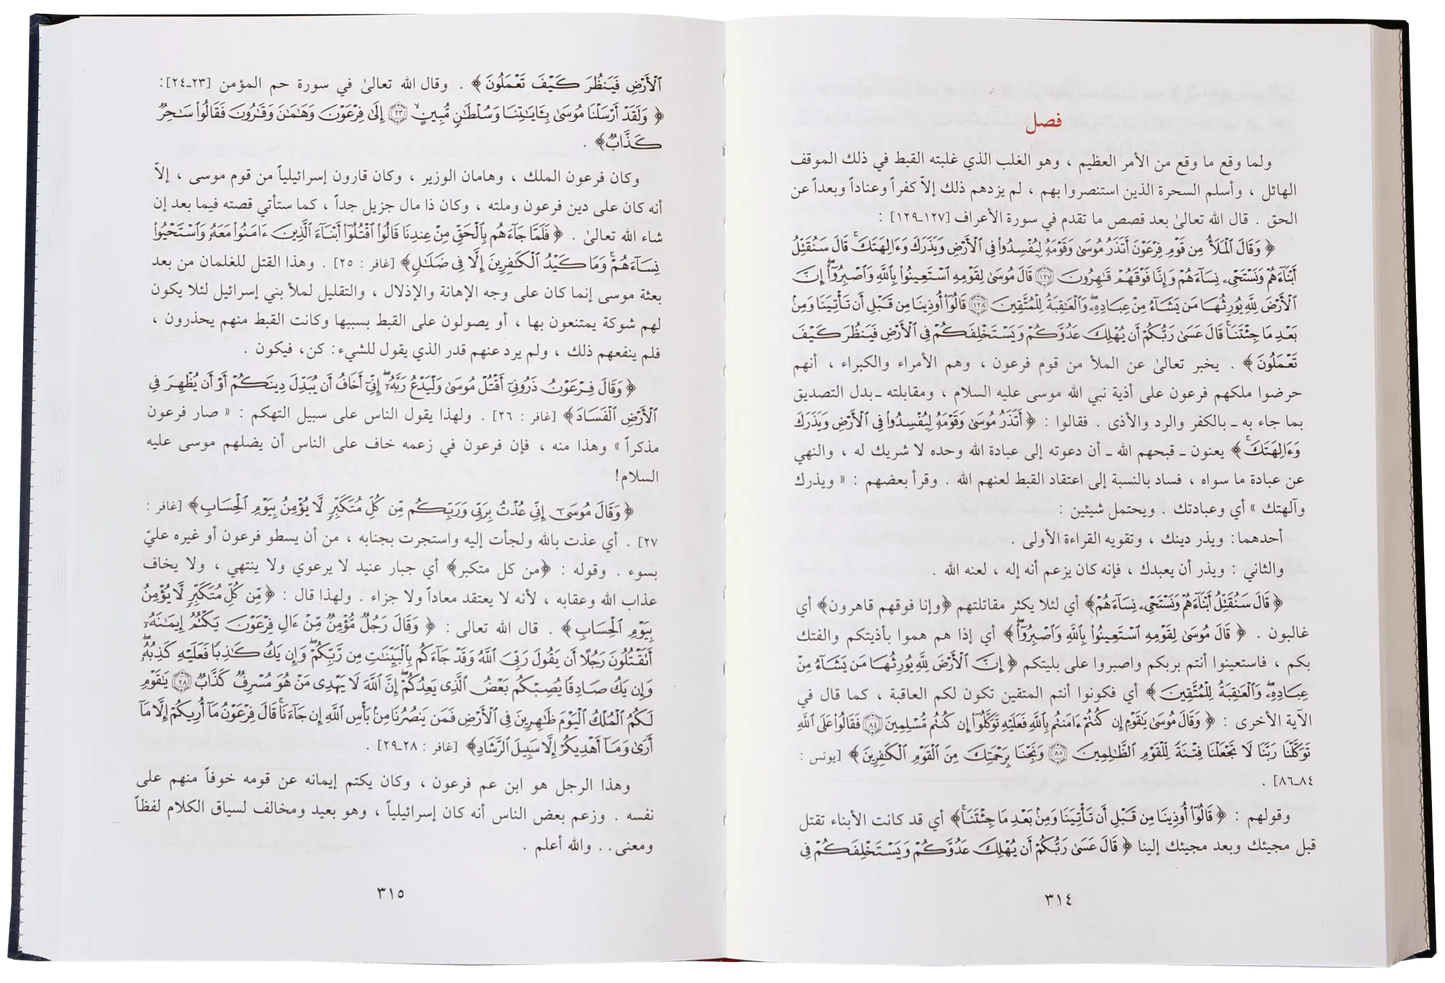 فصل
ولما وقع ما وقع من الأمر العظيم ، وهو الغلب الذي غلبته القبط في ذلك الموقف
الهائل ، وأسلم السحرة الذين استنصروا بهم ، لم يزدهم ذلك إلاّ كفراً وعناداً وبعداً عن
الحق . قال الله تعالىٰ بعد قصص ما تقدم في سورة الأعراف [١٢٧ـ١٢٩] :
﴿ وَقَالَ الْمَلَأُ مِن قَوْمِ فِرْعَوْنَ أَتَذَرُ مُوسَىٰ وَقَوْمَهُ لِيُفْسِدُوا فِي الْأَرْضِ وَيَذَرَكَ وَءَالِهَتَكَ قَالَ سَنُقَتِّلُ
أَبْنَاءَهُمْ وَنَسْتَحْيِ نِسَاءَهُمْ وَإِنَّا فَوْقَهُمْ قَاهِرُونَ ﴿١٢٧﴾ قَالَ مُوسَىٰ لِقَوْمِهِ اسْتَعِينُوا بِاللَّهِ وَاصْبِرُوا إِنَّ
الْأَرْضَ لِلَّهِ يُورِثُهَا مَن يَشَاءُ مِنْ عِبَادِهِ وَالْعَاقِبَةُ لِلْمُتَّقِينَ ﴿١٢٨﴾ قَالُوا أُوذِينَا مِن قَبْلِ أَن تَأْتِيَنَا وَمِنْ
بَعْدِ مَا جِئْتَنَا قَالَ عَسَىٰ رَبُّكُمْ أَن يُهْلِكَ عَدُوَّكُمْ وَيَسْتَخْلِفَكُمْ فِي الْأَرْضِ فَيَنظُرَ كَيْفَ
تَعْمَلُونَ ﴾ . يخبر تعالىٰ عن الملأ من قوم فرعون ، وهم الأمراء والكبراء ، أنهم
حرضوا ملكهم فرعون على أذية نبي الله موسى عليه السلام ، ومقابلته ـ بدل التصديق
بما جاء به ـ بالكفر والرد والأذى . فقالوا : ﴿ أَتَذَرُ مُوسَىٰ وَقَوْمَهُ لِيُفْسِدُوا فِي الْأَرْضِ وَيَذَرَكَ
وَءَالِهَتَكَ ﴾ يعنون ـ قبحهم الله ـ أن دعوته إلى عبادة الله وحده لا شريك له ، والنهي
عن عبادة ما سواه ، فساد بالنسبة إلى اعتقاد القبط لعنهم الله . وقرأ بعضهم : « ويذرك
وآلهتك » أي وعبادتك . ويحتمل شيئين :
أحدهما: ويذر دينك ، وتقويه القراءة الأولى .
والثاني : ويذر أن يعبدك ، فإنه كان يزعم أنه إله ، لعنه الله .
﴿ قَالَ سَنُقَتِّلُ أَبْنَاءَهُمْ وَنَسْتَحْيِ نِسَاءَهُمْ ﴾ أي لئلا يكثر مقاتلتهم ﴿وإنا فوقهم قاهرون﴾ أي
غالبون . ﴿ قَالَ مُوسَىٰ لِقَوْمِهِ اسْتَعِينُوا بِاللَّهِ وَاصْبِرُوا ﴾ أي إذا هم هموا بأذيتكم والفتك
بكم ، فاستعينوا أنتم بربكم واصبروا على بليتكم ﴿ إِنَّ الْأَرْضَ لِلَّهِ يُورِثُهَا مَن يَشَاءُ مِنْ
عِبَادِهِ وَالْعَاقِبَةُ لِلْمُتَّقِينَ ﴾ أي فكونوا أنتم المتقين تكون لكم العاقبة ، كما قال في
الآية الأخرى : ﴿ وَقَالَ مُوسَىٰ يَاقَوْمِ إِن كُنتُمْ ءَامَنتُم بِاللَّهِ فَعَلَيْهِ تَوَكَّلُوا إِن كُنتُم مُّسْلِمِينَ ﴿٨٤﴾ فَقَالُوا عَلَى اللَّهِ
تَوَكَّلْنَا رَبَّنَا لَا تَجْعَلْنَا فِتْنَةً لِّلْقَوْمِ الظَّالِمِينَ ﴿٨٥﴾ وَنَجِّنَا بِرَحْمَتِكَ مِنَ الْقَوْمِ الْكَافِرِينَ ﴾ [يونس :
٨٤ـ٨٦] .
وقولهم : ﴿ قَالُوا أُوذِينَا مِن قَبْلِ أَن تَأْتِيَنَا وَمِنْ بَعْدِ مَا جِئْتَنَا ﴾ أي قد كانت الأبناء تقتل
قبل مجيئك وبعد مجيئك إلينا ﴿ قَالَ عَسَىٰ رَبُّكُمْ أَن يُهْلِكَ عَدُوَّكُمْ وَيَسْتَخْلِفَكُمْ فِي
٣١٤
الْأَرْضِ فَيَنظُرَ كَيْفَ تَعْمَلُونَ ﴾ . وقال الله تعالىٰ في سورة حم المؤمن [٢٣ـ٢٤]:
﴿ وَلَقَدْ أَرْسَلْنَا مُوسَىٰ بِـَٔايَاتِنَا وَسُلْطَانٍ مُّبِينٍ ﴿٢٣﴾ إِلَىٰ فِرْعَوْنَ وَهَامَانَ وَقَارُونَ فَقَالُوا سَاحِرٌ
كَذَّابٌ ﴾ .
وكان فرعون الملك ، وهامان الوزير ، وكان قارون إسرائيلياً من قوم موسى ، إلاّ
أنه كان على دين فرعون وملئه ، وكان ذا مال جزيل جداً ، كما ستأتي قصته فيما بعد إن
شاء الله تعالىٰ . ﴿ فَلَمَّا جَاءَهُم بِالْحَقِّ مِنْ عِندِنَا قَالُوا اقْتُلُوا أَبْنَاءَ الَّذِينَ ءَامَنُوا مَعَهُ وَاسْتَحْيُوا
نِسَاءَهُمْ وَمَا كَيْدُ الْكَافِرِينَ إِلَّا فِي ضَلَالٍ ﴾ [غافر : ٢٥] . وهذا القتل للغلمان من بعد
بعثة موسى إنما كان على وجه الإهانة والإذلال ، والتقليل لملأ بني إسرائيل لئلا يكون
لهم شوكة يمتنعون بها ، أو يصولون على القبط بسببها وكانت القبط منهم يحذرون ،
فلم ينفعهم ذلك ، ولم يرد عنهم قدر الذي يقول للشيء: كن، فيكون .
﴿ وَقَالَ فِرْعَوْنُ ذَرُونِي أَقْتُلْ مُوسَىٰ وَلْيَدْعُ رَبَّهُ إِنِّي أَخَافُ أَن يُبَدِّلَ دِينَكُمْ أَوْ أَن يُظْهِرَ فِي
الْأَرْضِ الْفَسَادَ ﴾ [غافر : ٢٦] . ولهذا يقول الناس على سبيل التهكم : « صار فرعون
مذكراً » وهذا منه ، فإن فرعون في زعمه خاف على الناس أن يضلهم موسى عليه
السلام!
﴿ وَقَالَ مُوسَىٰ إِنِّي عُذْتُ بِرَبِّي وَرَبِّكُم مِّن كُلِّ مُتَكَبِّرٍ لَّا يُؤْمِنُ بِيَوْمِ الْحِسَابِ ﴾ [غافر :
٢٧] . أي عذت بالله ولجأت إليه واستجرت بجنابه ، من أن يسطو فرعون أو غيره عليّ
بسوء . وقوله : ﴿من كل متكبر﴾ أي جبار عنيد لا يرعوي ولا ينتهي ، ولا يخاف
عذاب الله وعقابه ، لأنه لا يعتقد معاداً ولا جزاء . ولهذا قال : ﴿ مِّن كُلِّ مُتَكَبِّرٍ لَّا يُؤْمِنُ
بِيَوْمِ الْحِسَابِ ﴾ . قال الله تعالى : ﴿ وَقَالَ رَجُلٌ مُّؤْمِنٌ مِّنْ ءَالِ فِرْعَوْنَ يَكْتُمُ إِيمَانَهُ
أَتَقْتُلُونَ رَجُلًا أَن يَقُولَ رَبِّيَ اللَّهُ وَقَدْ جَاءَكُم بِالْبَيِّنَاتِ مِن رَّبِّكُمْ وَإِن يَكُ كَاذِبًا فَعَلَيْهِ كَذِبُهُ
وَإِن يَكُ صَادِقًا يُصِبْكُم بَعْضُ الَّذِي يَعِدُكُمْ إِنَّ اللَّهَ لَا يَهْدِي مَنْ هُوَ مُسْرِفٌ كَذَّابٌ ﴿٢٨﴾ يَاقَوْمِ
لَكُمُ الْمُلْكُ الْيَوْمَ ظَاهِرِينَ فِي الْأَرْضِ فَمَن يَنصُرُنَا مِنْ بَأْسِ اللَّهِ إِن جَاءَنَا قَالَ فِرْعَوْنُ مَا أُرِيكُمْ إِلَّا مَا
أَرَىٰ وَمَا أَهْدِيكُمْ إِلَّا سَبِيلَ الرَّشَادِ ﴾ [غافر : ٢٨ـ٢٩] .
وهذا الرجل هو ابن عم فرعون ، وكان يكتم إيمانه عن قومه خوفاً منهم على
نفسه . وزعم بعض الناس أنه كان إسرائيلياً ، وهو بعيد ومخالف لسياق الكلام لفظاً
ومعنى.. والله أعلم .
٣١٥